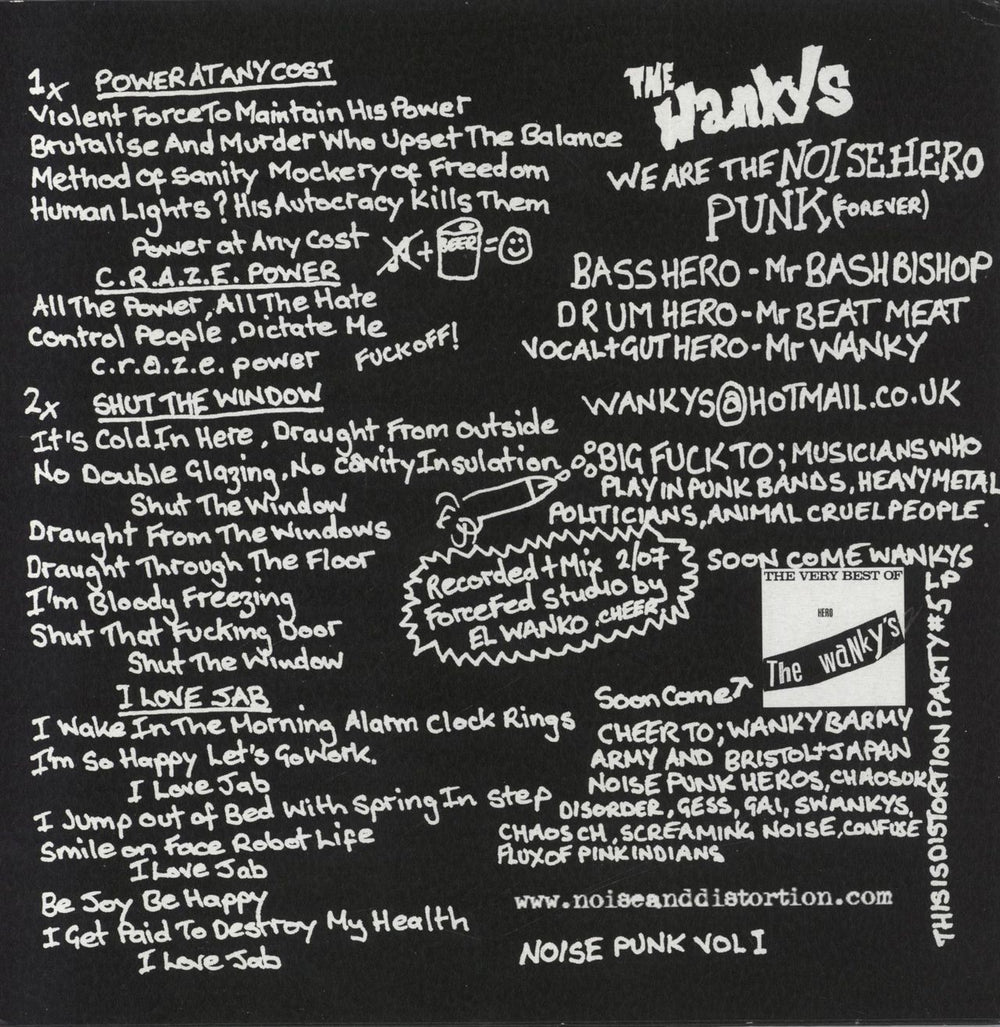 1x POWER AT ANY COST
Violent Force To Maintain His Power
Brutalise And Murder Who Upset The Balance
Method of Sanity Mockery of Freedom
Human Lights? His Autocracy Kills Them
Power at Any Cost
BEER
C.R.A.Z.E. POWER
All The Power, All The Hate
Control People, Dictate Me
C.r.a.z.e. power
FUCK OFF!
2x SHUT THE WINDOW
It's Cold In Here, Draught From outside
No Double Glazing, No Cavity Insulation
Shut The Window
Draught From The Windows
Draught Through The Floor
I'm Bloody Freezing
Shut That Fucking Door
Shut The Window
I LOVE JAB
I Wake In The Morning Alarm Clock Rings
I'm So Happy Let's Go Work.
I Love Jab
I Jump out of Bed With Spring In Step
Smile on Face Robot Life
I Love Jab
Be Joy Be Happy
I Get Paid To Destroy My Health
I Love Jab
THE Wanky's
WE ARE THE NOISE HERO
PUNK (FOREVER)
BASS HERO - Mr BASH BISHOP
DRUM HERO - Mr BEAT MEAT
VOCAL + GUT HERO - Mr WANKY
WANKYS@HOTMAIL.CO.UK
BIG FUCK TO; MUSICIANS WHO
PLAY IN PUNK BANDS, HEAVY METAL
POLITICIANS, ANIMAL CRUEL PEOPLE.
Recorded + Mix 2/07
ForceFed Studio by
EL WANKO. CHEER
SOON COME WANKYS
THE VERY BEST OF
HERO
The waNky's
THIS IS DISTORTION PARTY #5 LP
Soon Come
CHEER TO; WANKY BARMY
ARMY AND BRISTOL + JAPAN
NOISE PUNK HEROS, CHAOS UK
DISORDER, GESS, GAI, SWANKYS,
CHAOS CH, SCREAMING NOISE, CONFUSE
FLUX OF PINK INDIANS
www.noiseanddistortion.com
NOISE PUNK VOL I